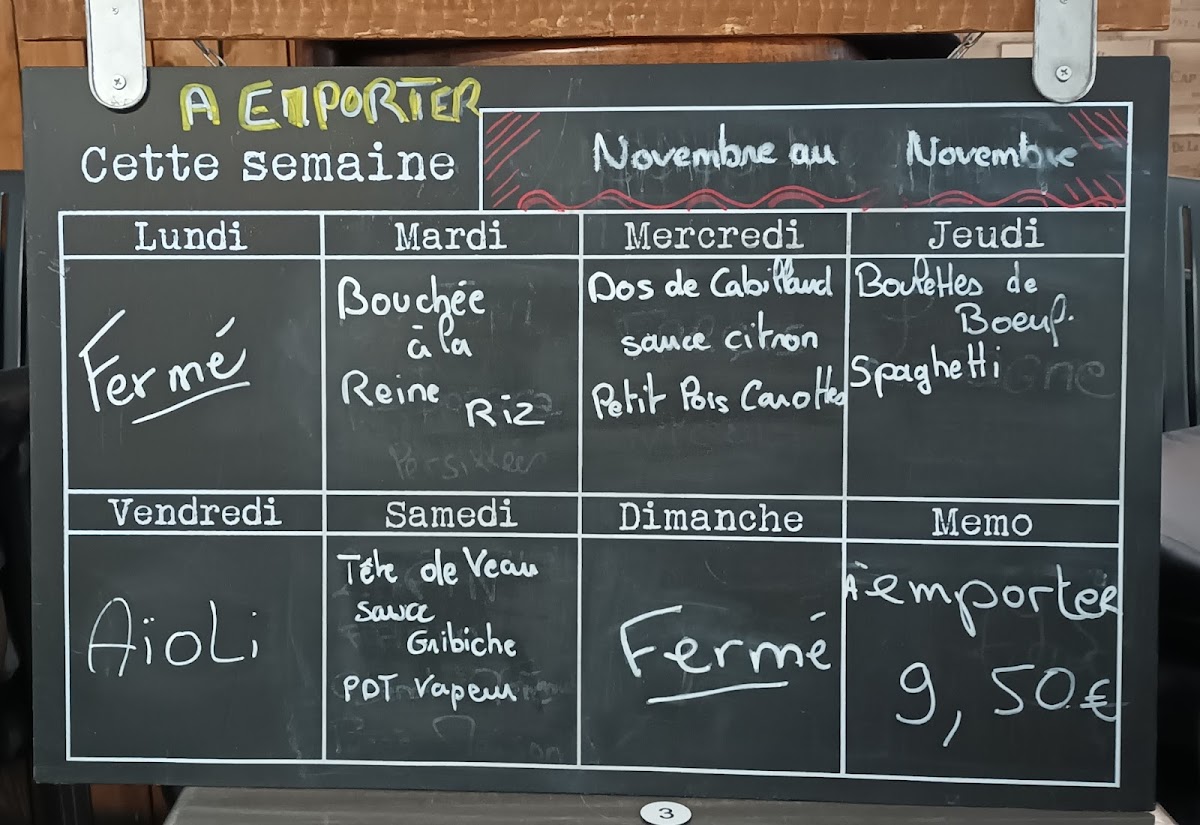 A EMPORTER
Cette semaine
Novembre au Novembre
Lundi
Fermé
Mardi
Bouchée
à la
Reine
Riz
Mercredi
Dos de Cabillaud
sauce citron
Petit Pois Carottes
Jeudi
Boulettes de
Boeuf.
Spaghetti
Vendredi
Aïoli
Samedi
Tête de Veau
sauce
Gribiche
PDT Vapeur
Dimanche
Fermé
Memo
A emporter
9,50€
3